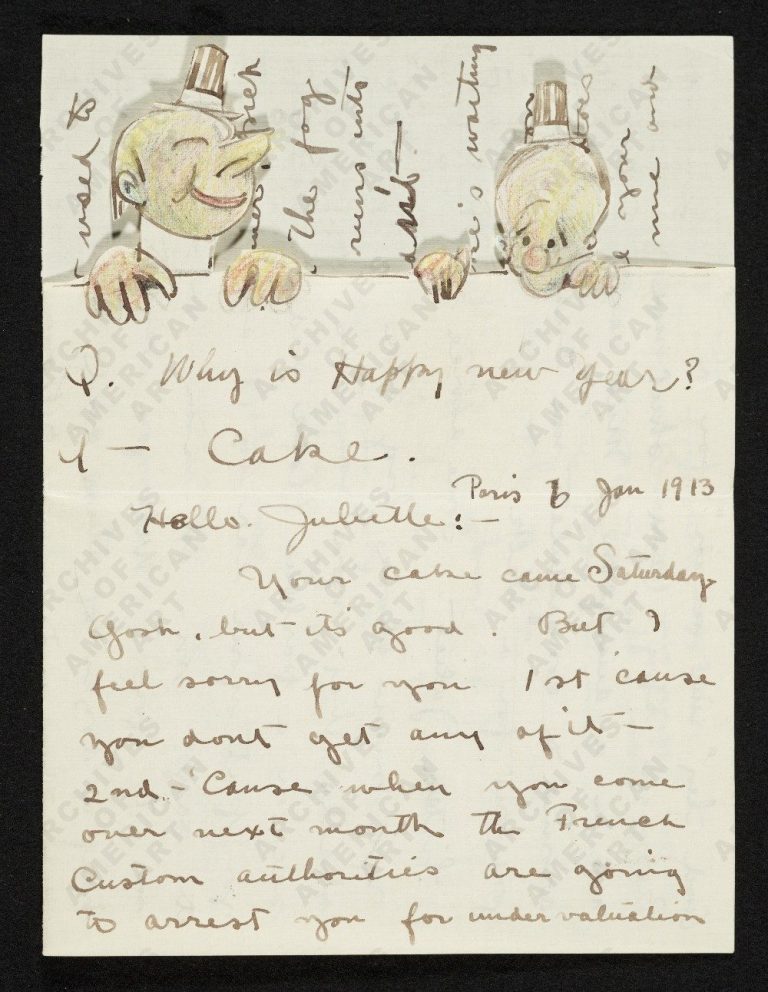 used to
pick
the fog
runs into
waiting
your
me and
Q. Why is Happy new year?
A — Cake.
Paris 6 Jan 1913
Hello. Juliette:—
Your cake came Saturday
Gosh, but its good. But I
feel sorry for you 1st 'cause
you dont get any of it —
2nd - 'Cause when you come
over next month the French
Custom authorities are going
to arrest you for undervaluation
ARCHIVES
OF
AMERICAN
ART